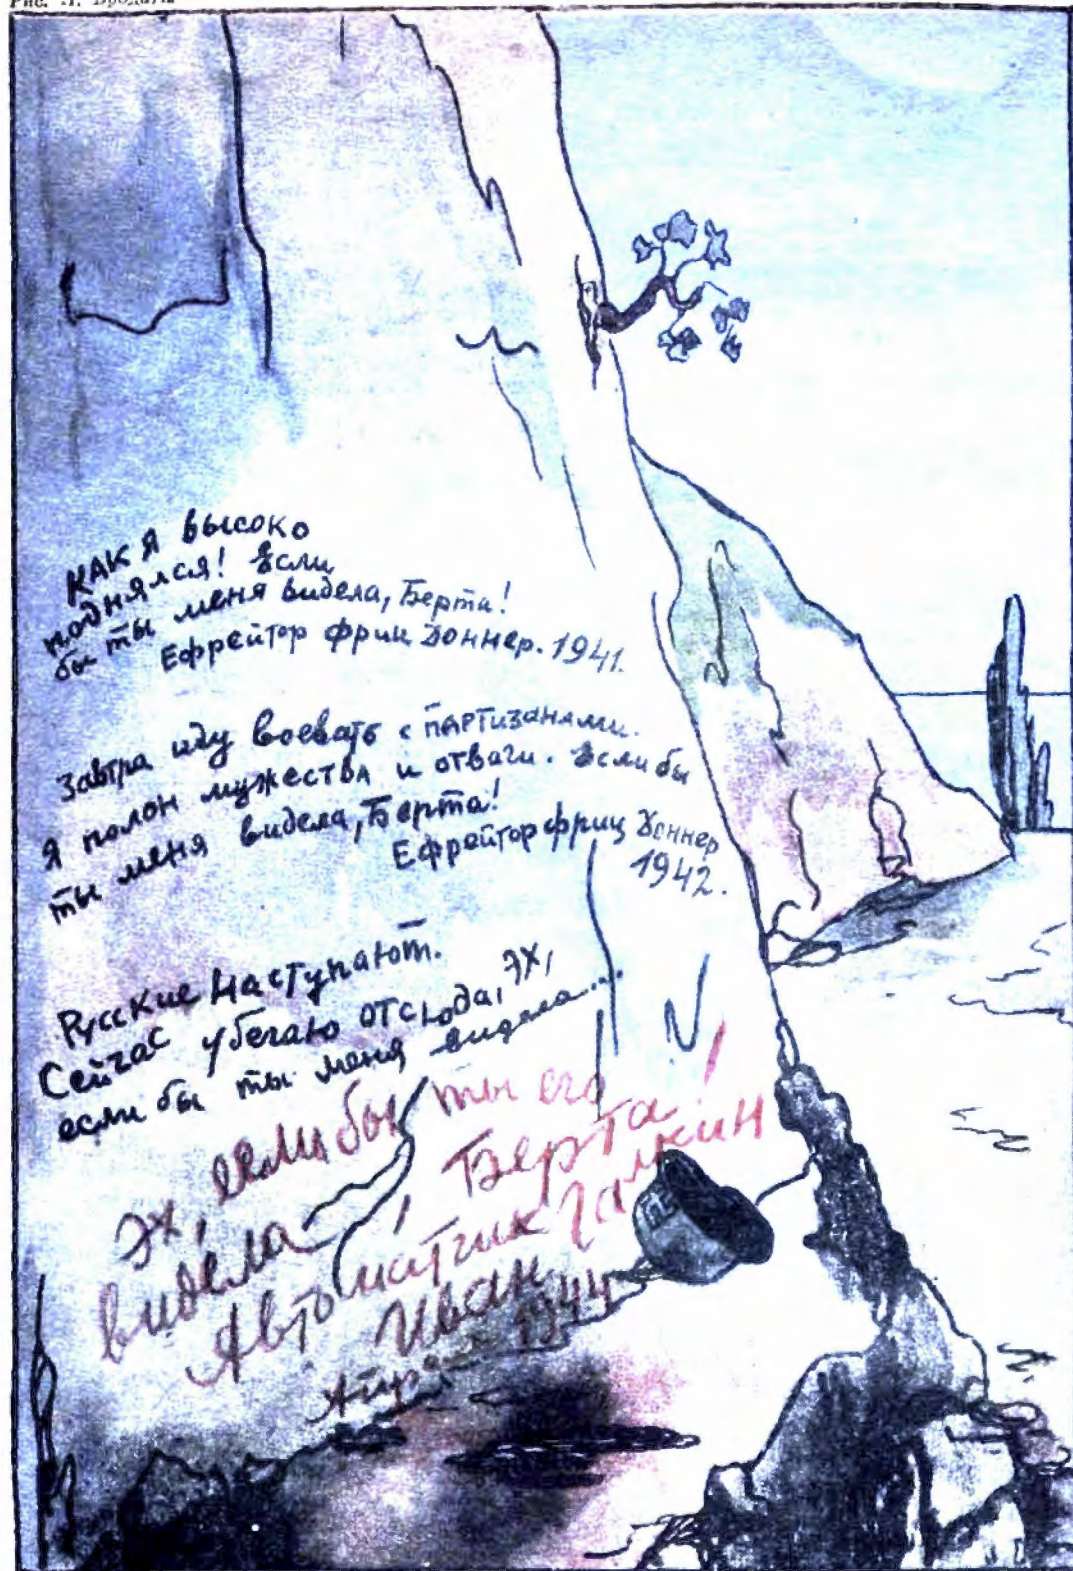 Рис. Л. Бродаты
КАК Я высоко
поднялся! Если
бы ты меня видела, Берта!
Ефрейтор Фриц Доннер. 1941.
Завтра иду воевать с партизанами.
Я полон мужества и отваги. Если бы
ты меня видела, Берта!
Ефрейтор Фриц Доннер
1942.
Русские наступают.
Сейчас убегаю отсюда, эх,
если бы ты меня видела...
Эх, если бы ты его
видела, Берта!
Автоматчик Галкин
Иван
1944